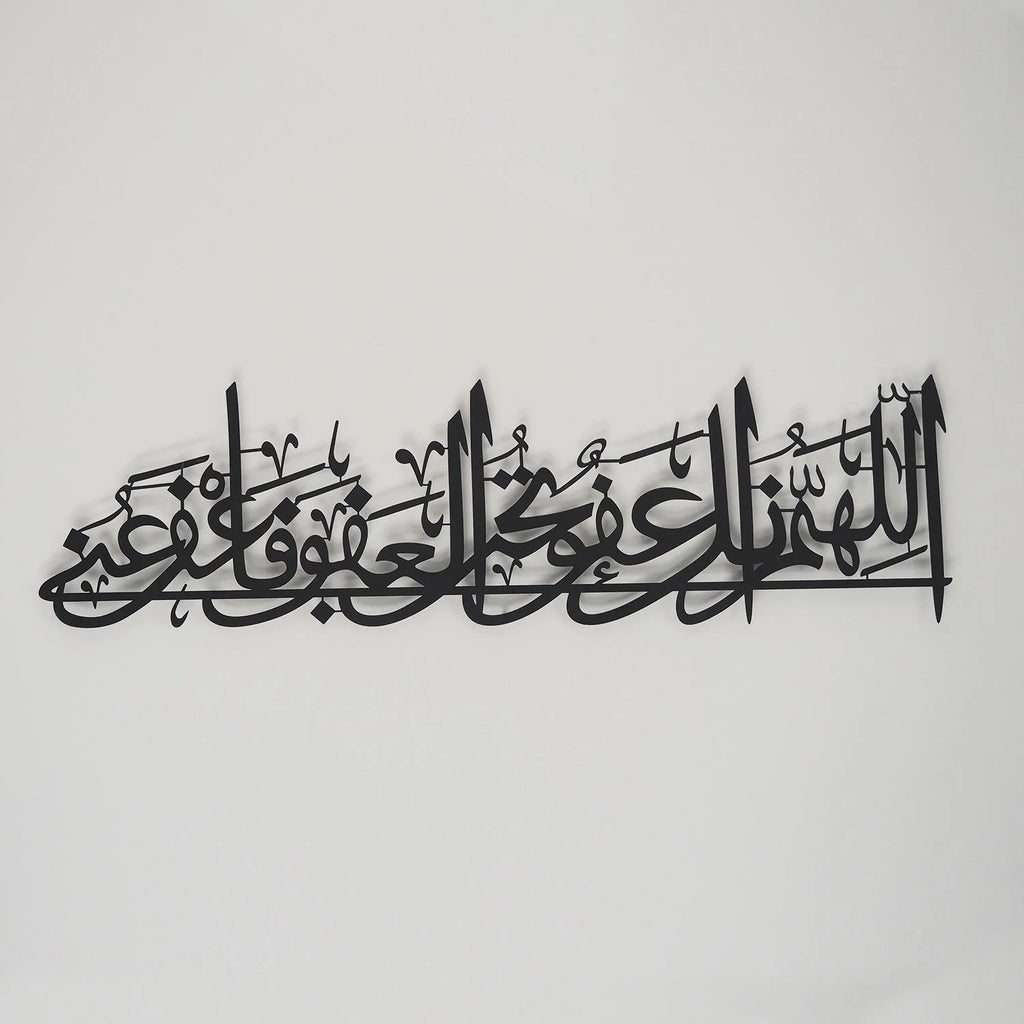 اللّٰهُمَّ إنك عَفُوٌّ تُحِبُّ الْعَفْوَ فَاعْفُ عَنِّي